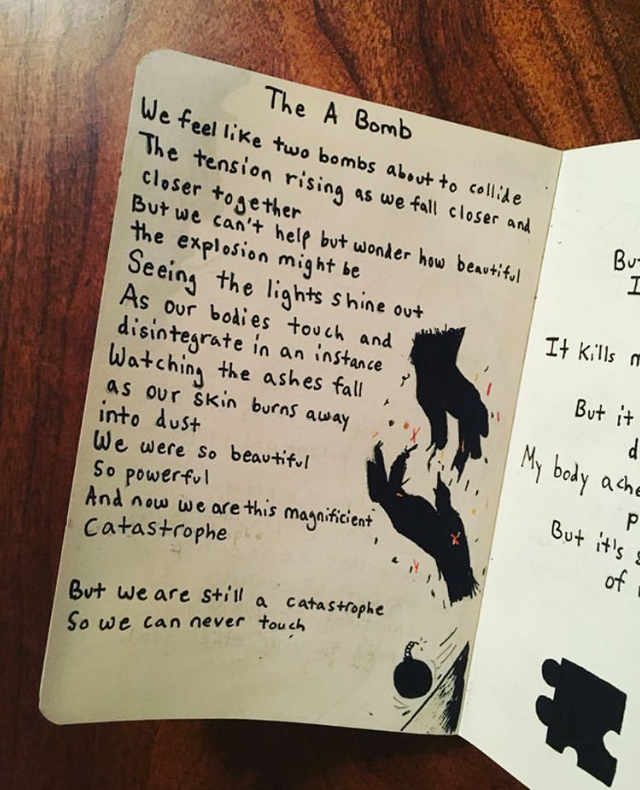 The A Bomb
We feel like two bombs about to collide
The tension rising as we fall closer and
closer together
But we can't help but wonder how beautiful
the explosion might be
Seeing the lights shine out
As our bodies touch and
disintegrate in an instance
Watching the ashes fall
as our skin burns away
into dust
We were so beautiful
So powerful
And now we are this magnificient
Catastrophe
But we are still a catastrophe
So we can never touch
It kills
But it
My body ache
But it's
of